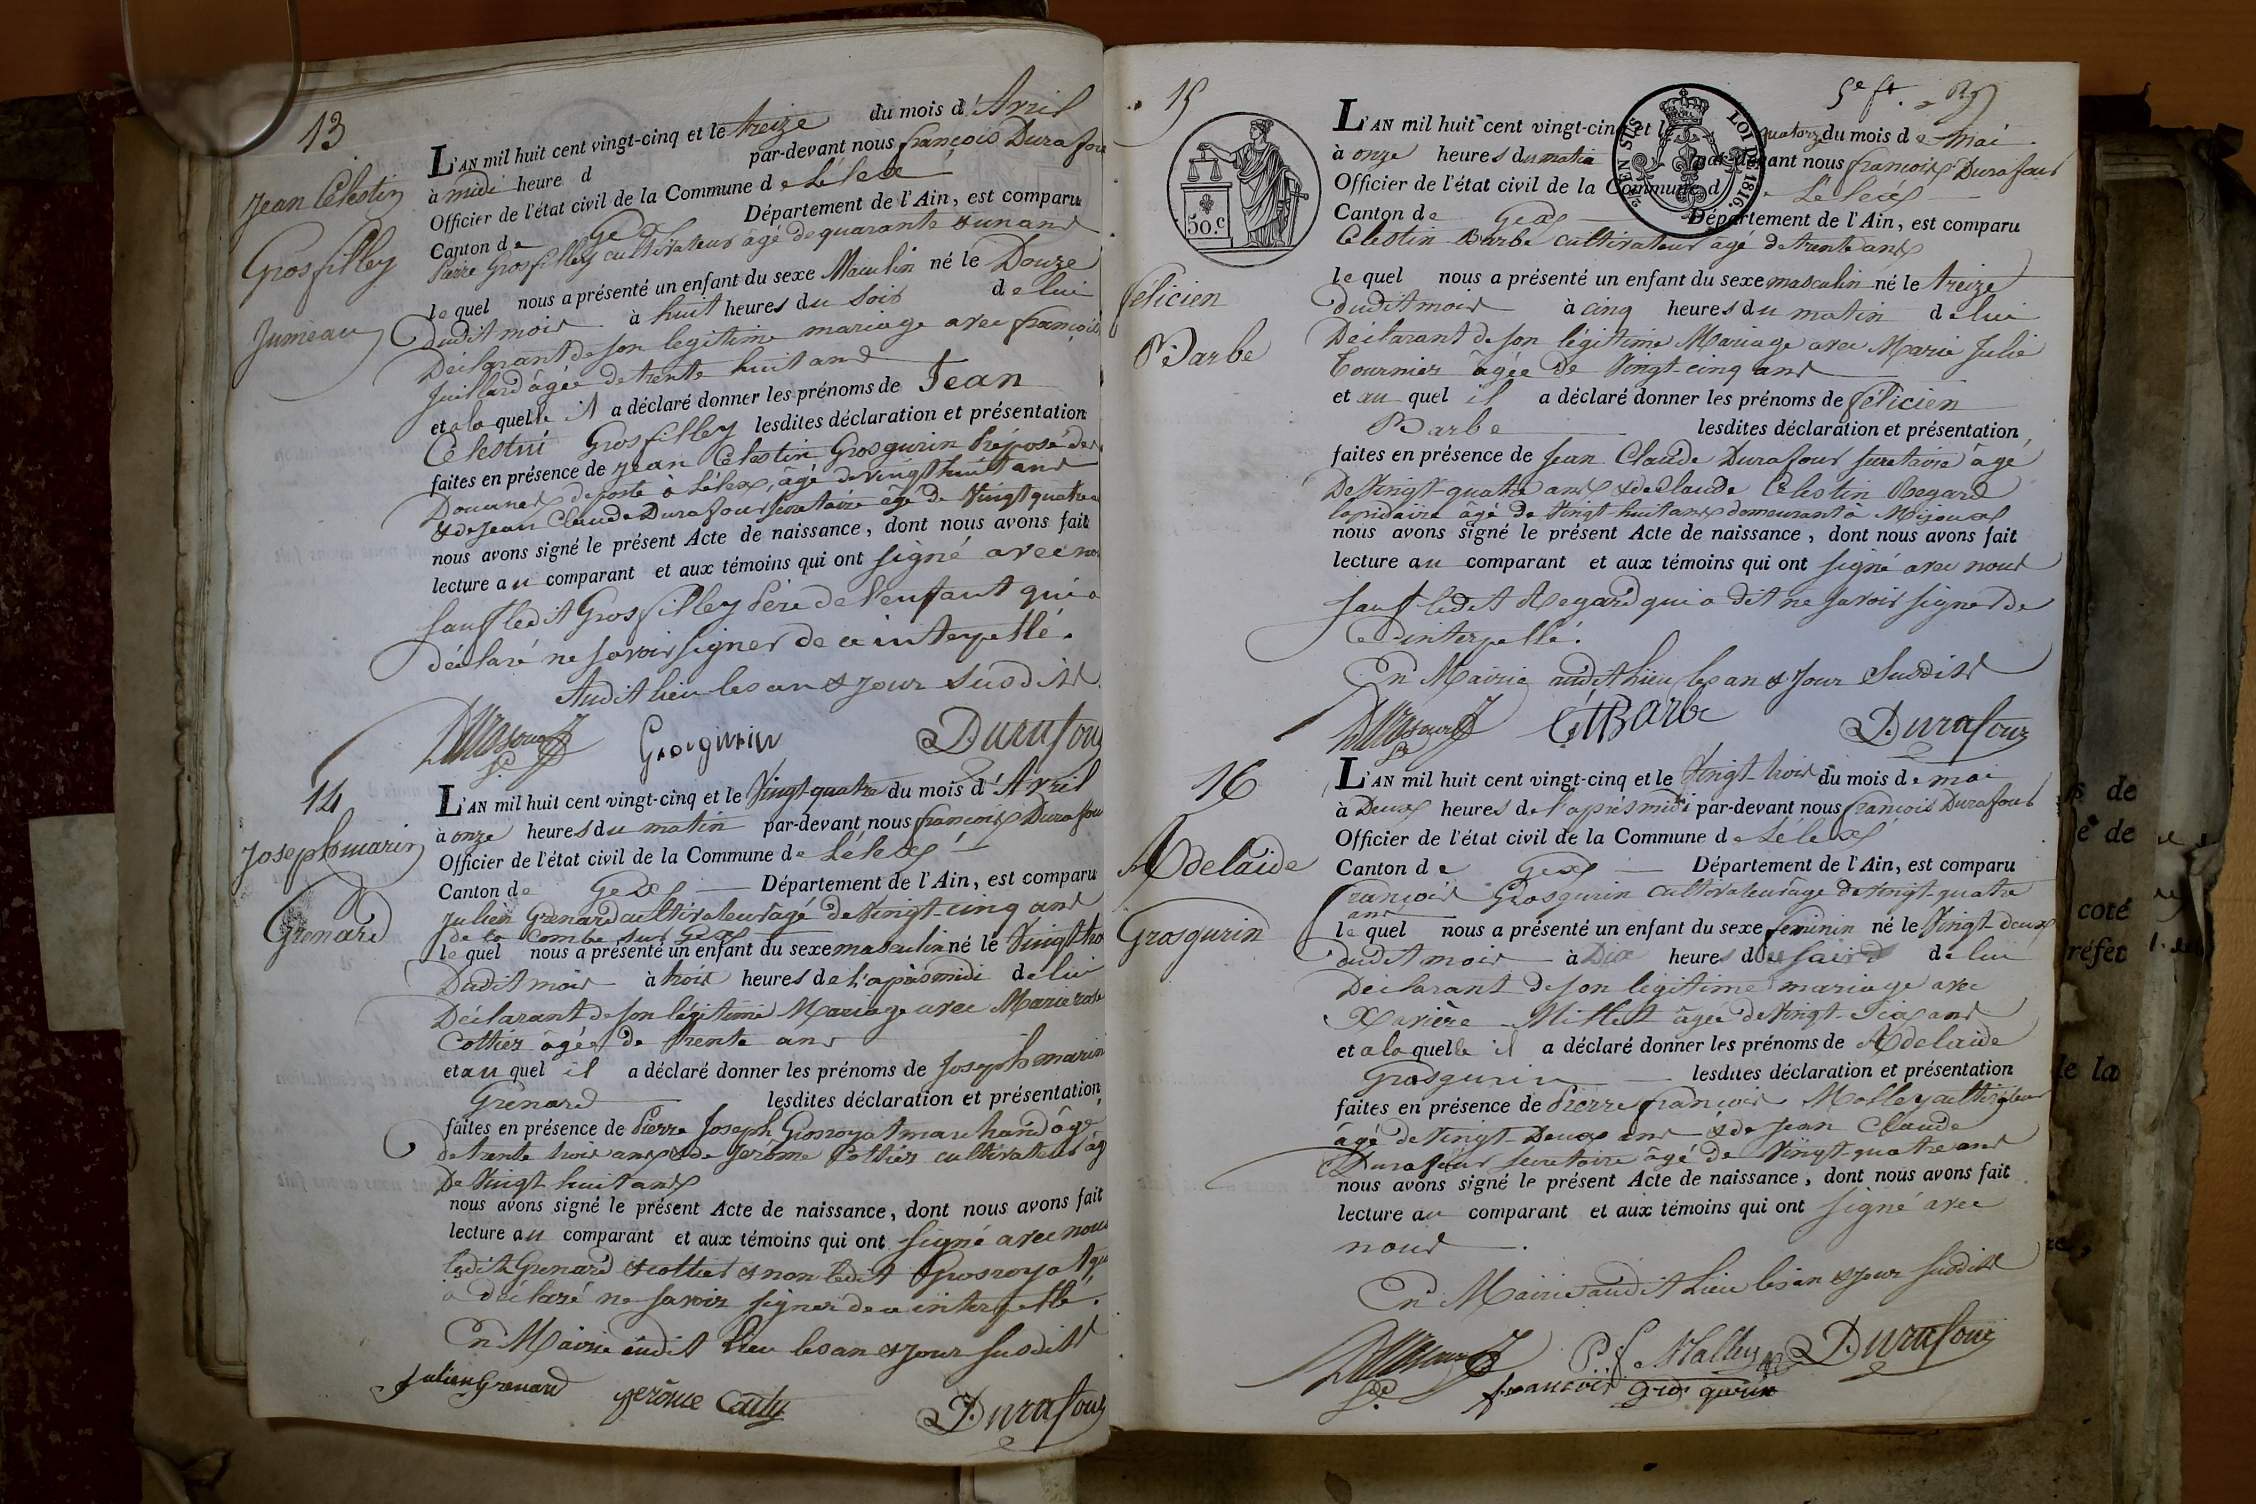 13
Jean Célestin
Grosfilley
Jumeau
L'AN mil huit cent vingt-cinq et le treize du mois d'Avril
à midi heure d par-devant nous françois Durafou
Officier de l'état civil de la Commune de Lélex
Canton de Gex Département de l'Ain, est comparu
Pierre Grosfilley cultivateur âgé de quarante & un ans
lequel nous a présenté un enfant du sexe Masculin né le Douze
dudit mois à huit heures du Soir de lui
Déclarant de son légitime mariage avec françoise
Juillard âgée de trente huit ans
et a la quelle il a déclaré donner les prénoms de Jean
Célestin Grosfilley lesdites déclaration et présentation
faites en présence de Jean Célestin Grosgurin Préposé des
Douanes de poste à Lélex, âgé de vingt huit ans
& de Jean Claude Durafour secrétaire âgé de Vingt quatre
nous avons signé le présent Acte de naissance, dont nous avons fait
lecture au comparant et aux témoins qui ont signé avec no
sauf ledit Grosfilley Père de l'enfant qui a
déclaré ne savoir signer de ce interpellé.
Audit lieu les an & jour susdits
Durafour Grosgurin Durafour
14
Joseph marin
Grenard
L'AN mil huit cent vingt-cinq et le Vingt-quatre du mois d'Avril
à onze heures du matin par-devant nous françois Durafou
Officier de l'état civil de la Commune de Lélex
Canton de Gex Département de l'Ain, est comparu
Julien Grenard cultivateur âgé de Vingt-cinq ans
de la Combe sur Gex
lequel nous a présenté un enfant du sexe masculin né le Vingt tro
Dudit mois à trois heures de l'après midi de lui
Déclarant de son légitime Mariage avec Marie rose
Cottier âgée de trente ans
et au quel il a déclaré donner les prénoms de Joseph marin
Grenard lesdites déclaration et présentation,
faites en présence de Pierre Joseph Grosroyat marchand âgé
de trente trois ans & de Jerôme Cottier cultivateur âg
De Vingt huit ans
nous avons signé le présent Acte de naissance, dont nous avons fait
lecture au comparant et aux témoins qui ont signé avec nous
ledit Grenard & cottier & non ledit Grosroyat qui
a déclaré ne savoir signer de ce interpellé.
En Mairie audit lieu les an & jour susdits
Julien Grenard jerôme Coutty Durafour
15
5e ft.
50.c
LOI DE 1816.
félicien
Barbe
L'AN mil huit cent vingt-cinq et le quatorze du mois de mai
à onze heures du matin par-devant nous françois Durafour
Officier de l'état civil de la Commune d Lélex
Canton de Gex Département de l'Ain, est comparu
Célestin Barbe cultivateur âgé de trente ans
lequel nous a présenté un enfant du sexe masculin né le treize
dudit mois à cinq heures du matin de lui
Déclarant de son légitime Mariage avec Marie Julie
Tournier âgée De Vingt-cinq ans
et au quel il a déclaré donner les prénoms de félicien
Barbe lesdites déclaration et présentation,
faites en présence de Jean Claude Durafour secretaire âgé
De Vingt-quatre ans & de Claude Célestin Regard
lapidaire âgé de Vingt huit ans demeurant à Mijoux
nous avons signé le présent Acte de naissance, dont nous avons fait
lecture au comparant et aux témoins qui ont signé avec nous
sauf ledit Regard qui a dit ne savoir signer de
ce interpellé.
En Mairie audit lieu les an & jour Susdits
Durafour Ct Barbe Durafour
16
Adelaïde
Grosgurin
L'AN mil huit cent vingt-cinq et le Vingt-trois du mois de mai
à Deux heures de l'après midi par-devant nous françois Durafour
Officier de l'état civil de la Commune de Lélex
Canton de Gex Département de l'Ain, est comparu
françois Grosgurin cultivateur âgé de Vingt-quatre
ans
lequel nous a présenté un enfant du sexe feminin né le Vingt-deux
dudit mois à Dix heures du soir de lui
Déclarant de son légitime mariage avec
Xavière Millet âgée de Vingt-Six ans
et a la quelle il a déclaré donner les prénoms de Adelaïde
Grosgurin lesdites déclaration et présentation
faites en présence de Pierre françois Malley cultivateur
âgé de Vingt-Deux ans & de Jean Claude
Durafour secretaire âgé de Vingt-quatre ans
nous avons signé le présent Acte de naissance, dont nous avons fait
lecture au comparant et aux témoins qui ont signé avec
nous.
En Mairie audit Lieu les an & jour susdits
Durafour P. f. Malley Durafour
francois Gros gurin
de
e de
coté
réfet
e la